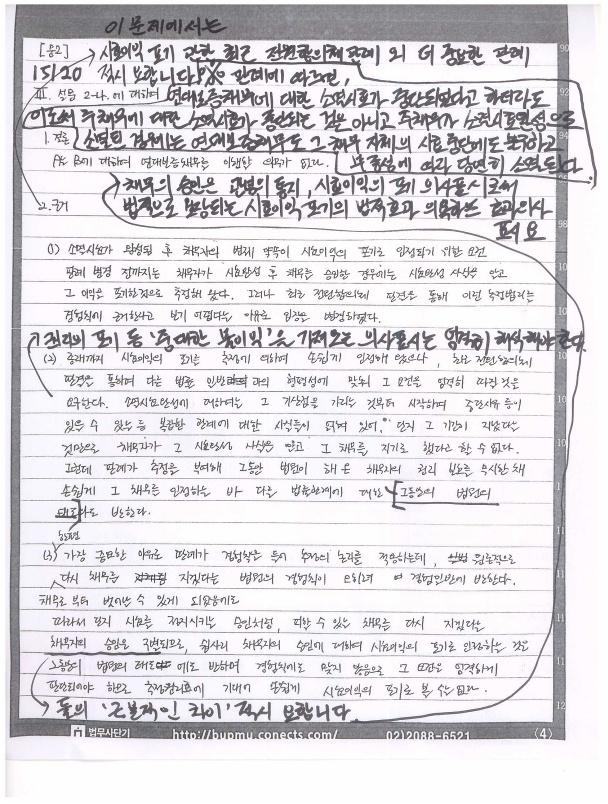 이 문제에서는
[문2] 시효이익 포기 관한 최근 전원합의체 판례 외 더 중요한 판례
15/20 적시 요합니다. 판례에 따르면,
III. 설문 2-나.에 대하여 연대보증채무에 대한 소멸시효가 중단되었다고 하더라도
이로써 주채무에 대한 소멸시효가 중단되는 것은 아니고 주채무가 소멸시효 완성으로
1. 결론 소멸된 경우에는 연대보증채무도 그 채무 자체의 시효중단에도 불구하고
부종성에 따라 당연히 소멸된다.
A는 B에 대하여 연대보증채무를 이행할 의무가 없다.
채무의 승인은 관념의 통지, 시효이익의 포기 의사표시로써
2. 근거 법적으로 보장되는 시효이익 포기의 법적효과 의욕하는 효과의사
필요
(1) 소멸시효가 완성된 후 채무자의 변제 약속이 시효이익의 포기로 인정되기 위한 요건
판례 변경 전까지는 채무자가 시효완성 후 채무를 승인한 경우에는 시효완성 사실을 알고
그 이익을 포기한것으로 추정해 왔다. 그러나 최근 전원합의체 판결을 통해 이런 추정법리는
경험칙에 근거한다고 보기 어렵다는 이유로 입장을 변경하였다.
권리의 포기 등 '중대한 불이익'을 가져오는 의사표시는 엄격히 해석해야 한다.
(2) 종래까지 시효이익의 포기는 추정에 의하여 손쉽게 인정해 왔으나, 최근 전원합의체
판결을 통하여 다른 법률 일반과의 형평성에 맞춰 그 요건을 엄격히 따질 것을
요구한다. 소멸시효완성에 대하여는 그 기산점을 가리는 것부터 시작하여 중단사유 등이
있을 수 있는 등 복잡한 판례에 대한 사실들이 있어, 단지 그 기간이 지났다는
것만으로 채무자가 그 시효완성 사실을 알고 그 채무를 지기로 했다고 할 수 없다.
그런데 판례가 추정을 부여해 그동안 법원이 해 온 채무자의 권리 보호를 무시한 채
손쉽게 그 채무를 인정하는 바 다른 법률관계에 대한 그동안의 법원의
태도와도 반한다.
(3) 가장 중요한 이유로 판례가 경험칙을 들어 추정의 논리를 적용하는데, 일반적으로
다시 채무를 지겠다는 법원의 경험칙이 오히려 경험일반에 반한다.
채무로부터 벗어날 수 있게 되었음에도
따라서 단지 시효를 저지시키는 승인처럼, 피할 수 있는 채무를 다시 지겠다는
채무자의 승인은 구별되므로, 쉽사리 채무자의 승인에 대하여 시효이익의 포기로 인정하는 것은
그동안의 법원의 태도에도 반하며 경험칙에도 맞지 않음으로 그 요건을 엄격하게
판단되어야 하므로 추정법리에 기대어 손쉽게 시효이익의 포기로 볼 수는 없다.
둘의 '근본적인 차이' 적시 요합니다
법무사단기 http://bupmu.conects.com/ 02)2088-6521 〈4〉